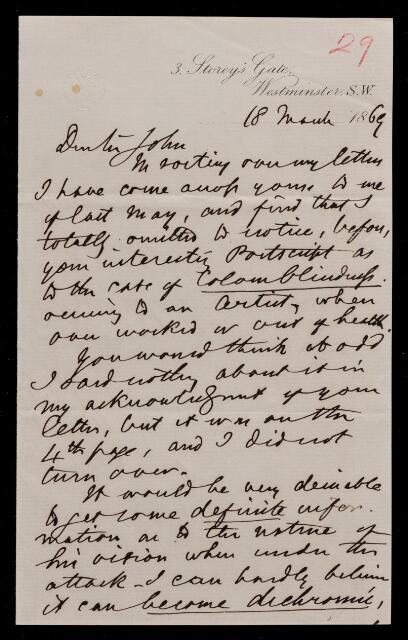 29
3, Storey's Gate,
Westminster, S.W.
18 March 1869
Dear Sir John
In sorting over my letters
I have come across yours to me
of last May, and find that I
totally omitted to notice, before,
your interesting Postscript as
to the case of Colour Blindness
occuring to an Artist, when
over worked or out of health.
You would think it odd
I said nothing about it in
my acknowledgment of your
letter, but it was on the
4th page, and I did not
turn over.
It would be very desirable
to get some definite infor-
mation as to the nature of
his vision when under the
attack - I can hardly believe
it can become dichromic,